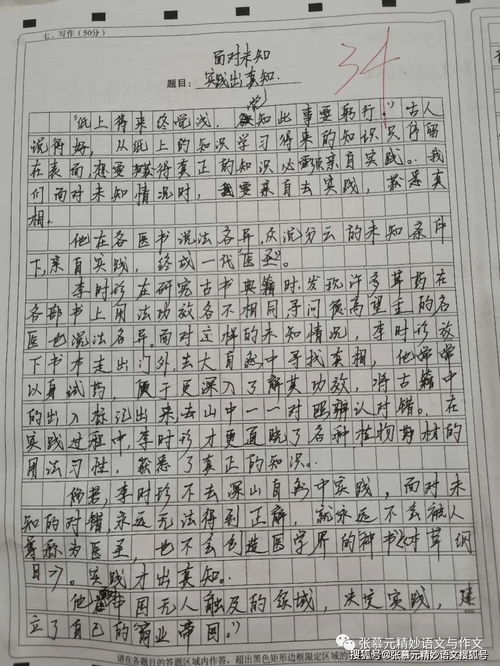 七、写作(50分)
面对未知
题目:实践出真知.
34
"纸上得来终觉浅,觉知此事要躬行。"古人
说得好,从纸上的知识学习得来的知识只停留
在表面,想要获得真正的知识必须亲自实践。我
们面对未知情况时,我要亲自去实践,获悉真
相.
他在各医书说法各异,众说纷云的未知条件
下,亲自实践,终成一代"医圣"。
李时珍在研究古书典籍时,发现许多草药在
各部书上用法功效各不相同寻问德高望重的名
医也说法各异。面对这样的未知情况,李时珍放
下书本走出门外,去大自然中寻找真相,他常常
以身试药,便于更深入了解其功效,将古籍中
的出入标记出来,去山中一一对照辨认对错。在
实践过程中,李时珍才更通晓了各种植物药材的
用法习性,获悉了真正的知识。
倘若,李时珍不去深山自然中实践,面对未
知的对错永远无法得到正解,就永远不会被人
尊称为医圣,也不会创造医学界的神书《本草纲
目》。实践才出真知。
他在中国无人触及的领域,决定实践,建
立了自己的"商业帝国"。
请在各题目的答题区域内作答,超出黑色矩形边框限定区域的
张慕元精妙语文与作文
搜狐号@张慕元精妙语文搜狐号